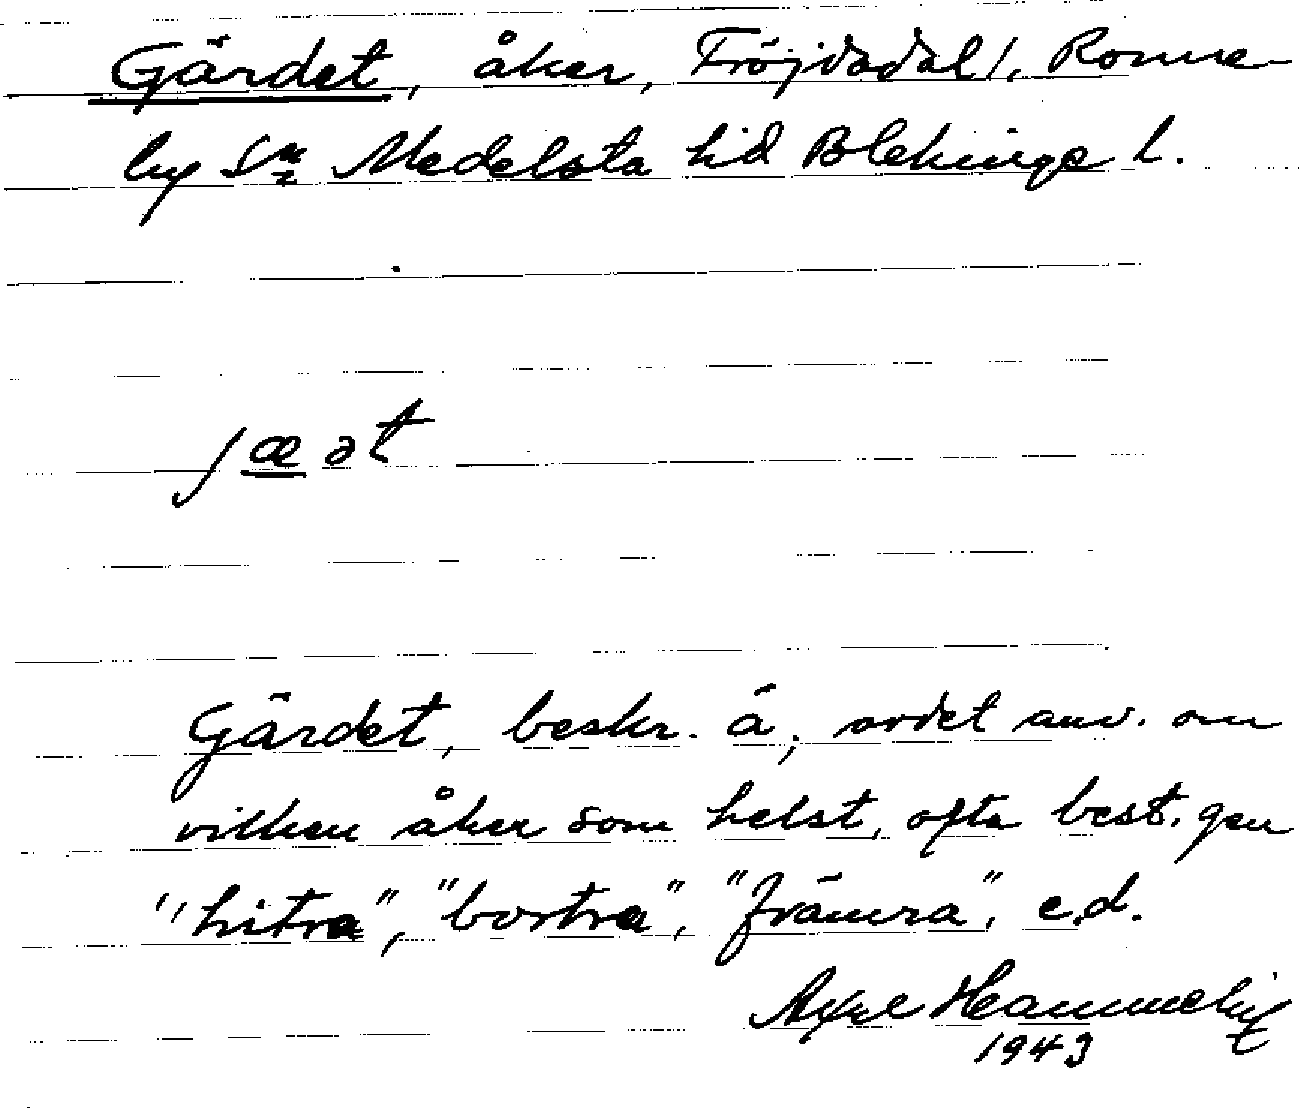 Gärdet, åker, Fröjdadal/, Ronne-
by Sn Medelsta hd Blekinge l.
jæət
Gärdet, beskr. å, ordet anv. om
vilken åker som helst, ofta best. gen
"hitra", "bortra", "främra", e.d.
Axel
1943